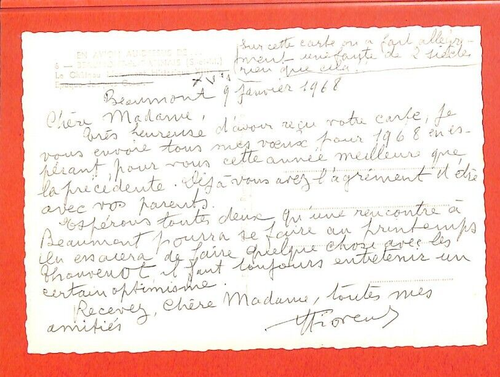 EN AVION AU-DESSUS DE...
Sur cette carte on a fait allègre-
ment une faute de 2 siècles
rien que cela.
XVI
Beaumont 9 janvier 1968
Chère Madame,
Très heureuse d'avoir reçu votre carte, je
vous envoie tous mes vœux pour 1968 en es-
pérant, pour vous cette année meilleure que
la précédente. Déjà vous avez l'agrément d'être
avec vos parents.
Espérons toutes deux qu'une rencontre à
Beaumont pourra se faire au printemps
On essaiera de faire quelque chose avec les
Thauvenot il faut toujours entretenir un
certain optimisme.
Recevez, Chère Madame, toutes mes
amitiés